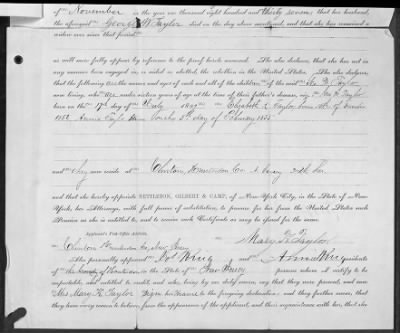 of November in the year one thousand eight hundred and thirty seven; that her husband,
the aforesaid George W Taylor died on the day above mentioned, and that she has remained a
widow ever since that period
as will more fully appear by reference to the proof hereto annexed. She also declares, that she has not in
any manner been engaged in, or aided or abetted, the rebellion in the United States. She also declares,
that the following are the names and ages of each and all of the children of the said Geo. W. Taylor
now living, who are under sixteen years of age at the time of their father's decease, viz: Geo. W Taylor
born on the 17th day of July Elizabeth Taylor born
1852 Annie Taylor born 5th day of February 1855
and they now reside at Clinton Hunterdon Co. N Jersey with her
and she hereby appoints NETTLETON, GILBERT & CAMP, of New-York City, in the State of New-
York, her Attorneys, with full power of substitution, to procure for her from the United States such
Pension as she is entitled to, and to receive such Certificate as may be issued for the same.
Applicant's Post-Office Address,
Clinton Hunterdon Co, New Jersey
Mary H. Taylor
Also personally appeared and residents
of the County of Hunterdon in the State of New Jersey persons whom I certify to be
respectable, and entitled to credit, and who, being by me duly sworn, say that they were present, and saw
Mrs. Mary H. Taylor sign her name to the foregoing declaration; and they further swear, that
they have every reason to believe, from the appearance of the applicant, and their acquaintance with her, that she